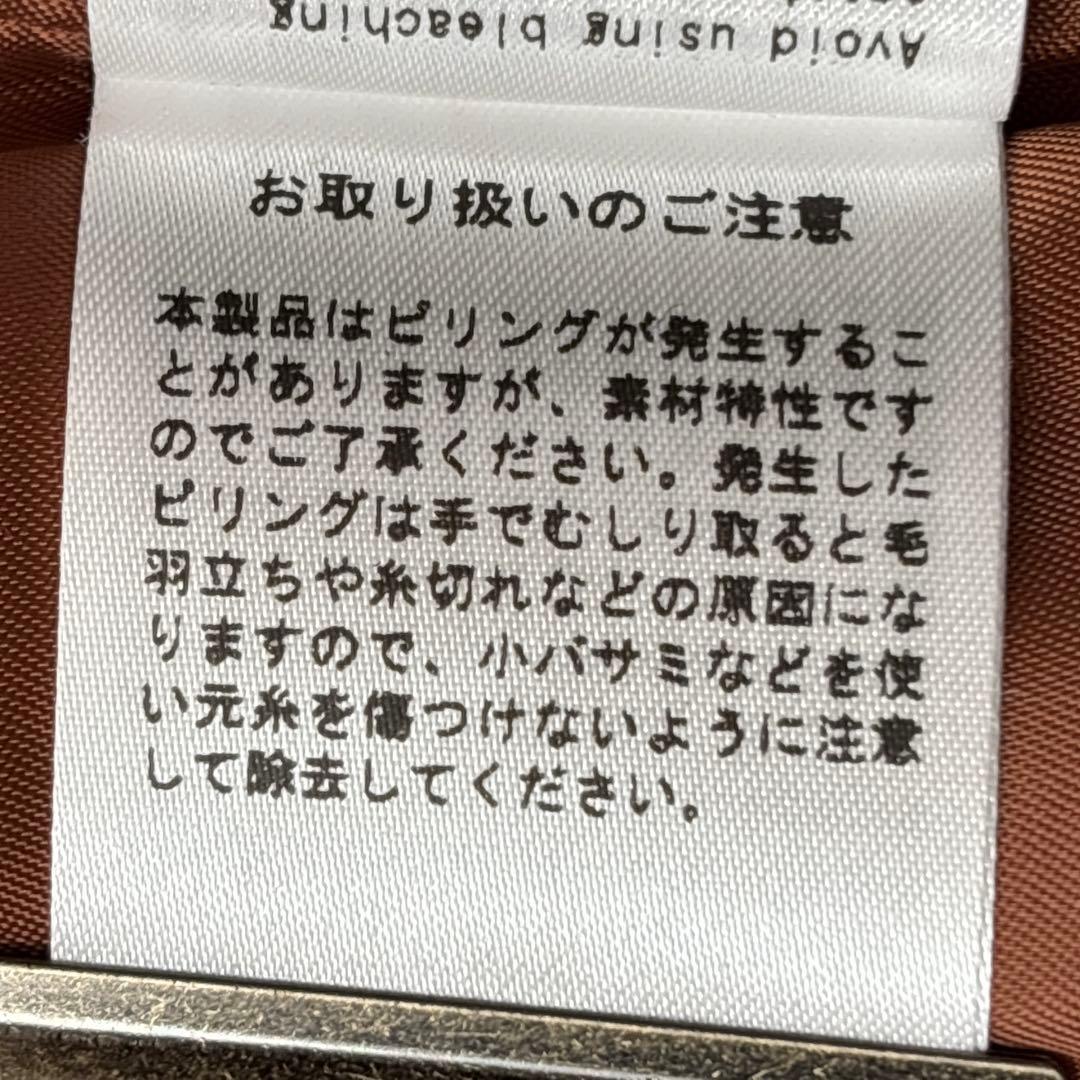 Avoid using bleaching
お取り扱いのご注意
本製品はピリングが発生するこ
とがありますが、素材特性です
のでご了承ください。発生した
ピリングは手でむしり取ると毛
羽立ちや糸切れなどの原因にな
りますので、小バサミなどを使
い元糸を傷つけないように注意
して除去してください。